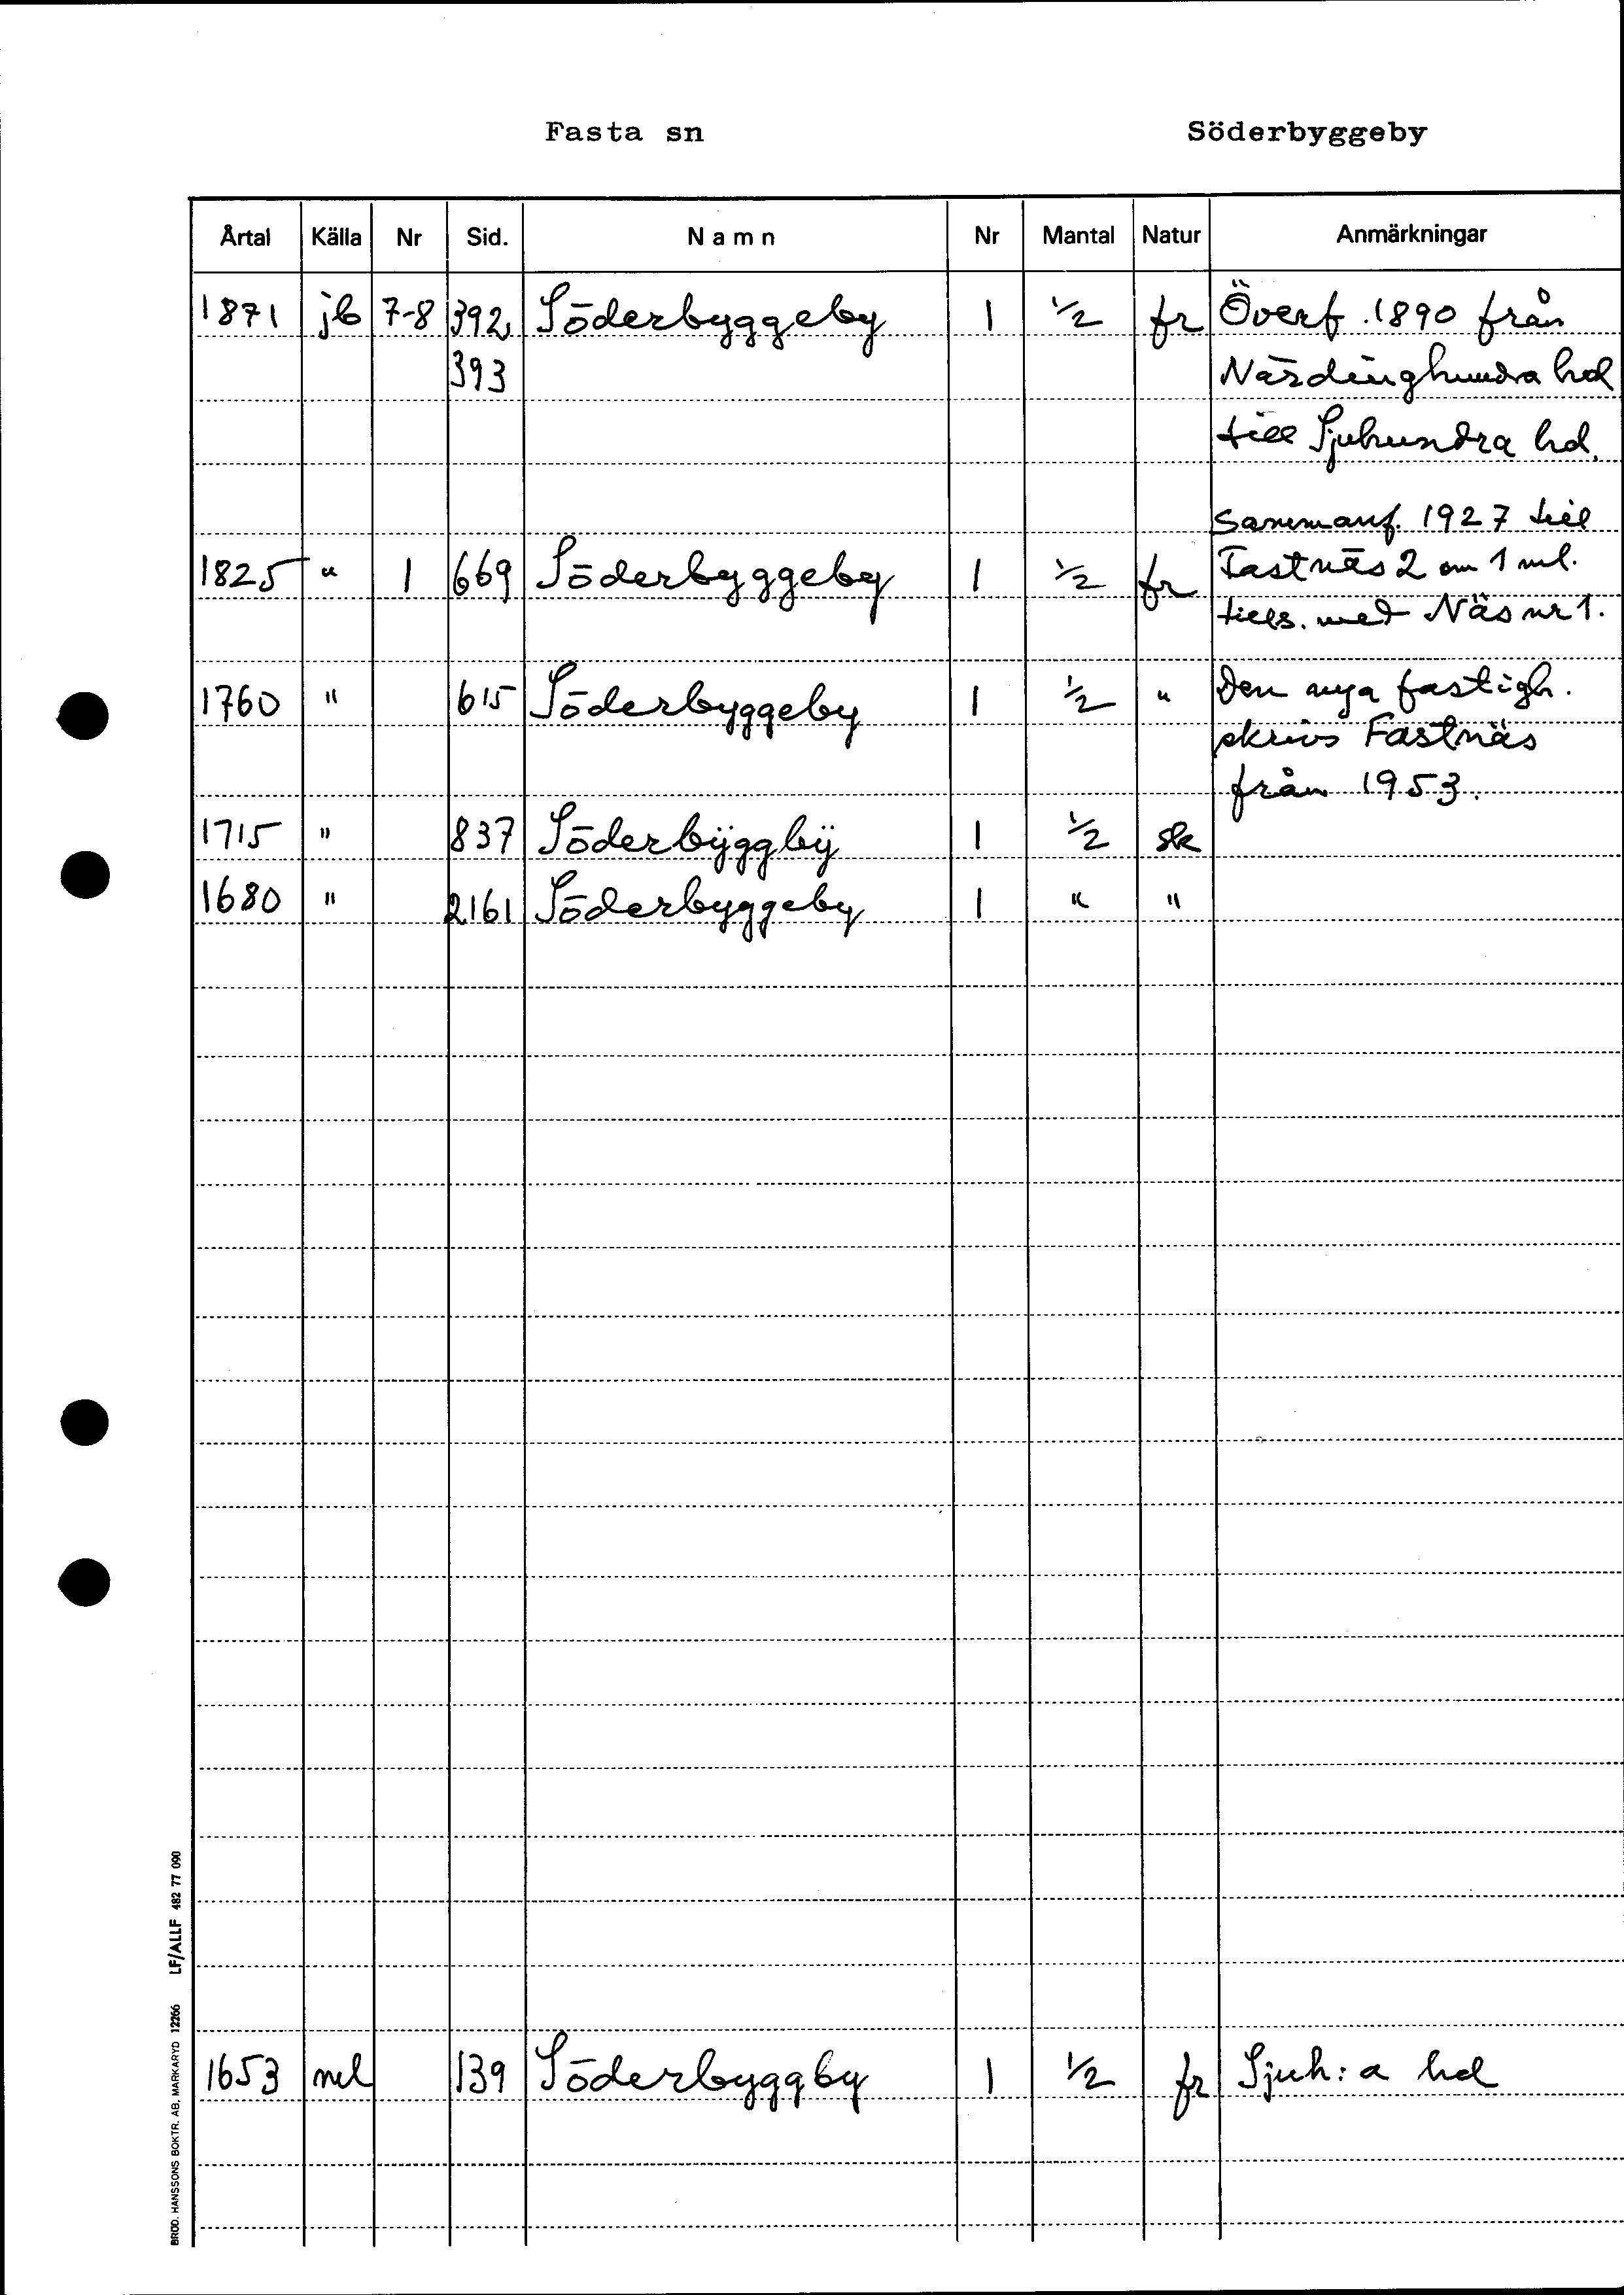 Fasta sn Söderbyggeby
Årtal Källa Nr Sid. Namn Nr Mantal Natur Anmärkningar
1871 jb 7-8 392, Söderbyggeby 1 1/2 fr Överf. 1890 från
393 Närdinghundra hd
till Sjuhundra hd.
Sammanf. 1927 till
1825 " 1 669 Söderbyggeby 1 1/2 fr Fastnäs 2 om 1 ml.
tills. med Näs nr 1.
1760 " 615 Söderbyggeby 1 1/2 " Den nya fastigh.
skrivs Fastnäs
från 1953.
1715 " 837 Söderbÿggbÿ 1 1/2 sk
1680 " 2161 Söderbyggeby 1 " "
1653 ml 139 Söderbyggby 1 1/2 fr Sjuh:a hd
BRÖD. HANSSONS BOKTR. AB, MARKARYD 12266 LF/ALLF 482 77 090